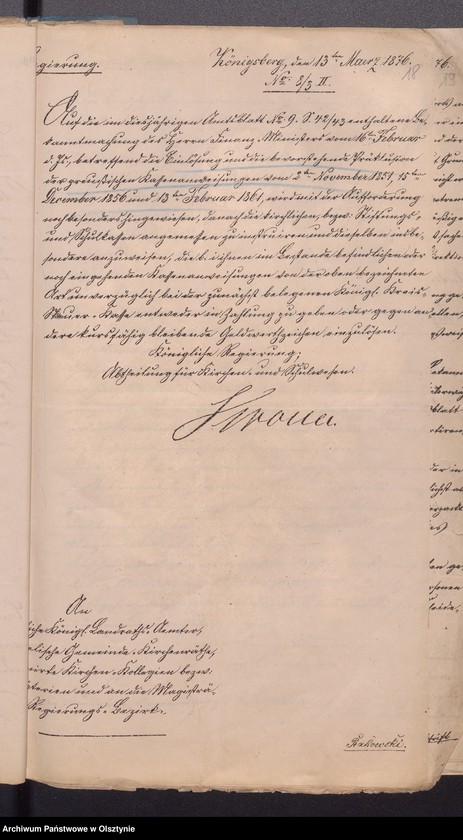 gierung.
Königsberg, den 13ten Maerz 1876.
18
No: 8/3 II.
Auf die im diesjährigen Amtsblatt No. 9. S. 42/43 enthaltene Be-
kanntmachung des Herrn Finanz-Ministers vom 16ten Februar
d. Js., betreffend die Einlösung und die bevorstehende Präklusion
der preußischen Kassenanweisungen vom 2ten November 1851, 15ten
December 1856 und 13ten Februar 1861, wird mit der Aufforderung
noch besonders hingewiesen, danach die kirchlichen, bezw. Stiftungs-
und Schulkassen angemessen zu instruiren und dieselben insbe-
sondere anzuweisen, die bei ihnen im Bestande befindlichen oder
noch eingehenden Kassenanweisungen von der oben bezeichneten
Art unverzüglich bei der zunächst belegenen Königl. Kreis-
Steuer-Kasse entweder in Zahlung zu geben oder gegen an
dere kursfähig bleibende Geldwerthzeichen einzulösen.
Königliche Regierung;
Abtheilung für Kirchen- und Schulwesen.
An
liche Königl. Landraths-Aemter,
elische Gemeinde-Kirchenräthe,
Kirchen-Kollegien bezw.
und an die Magisträ-
Regierungs-Bezirk.
Archiwum Państwowe w Olsztynie